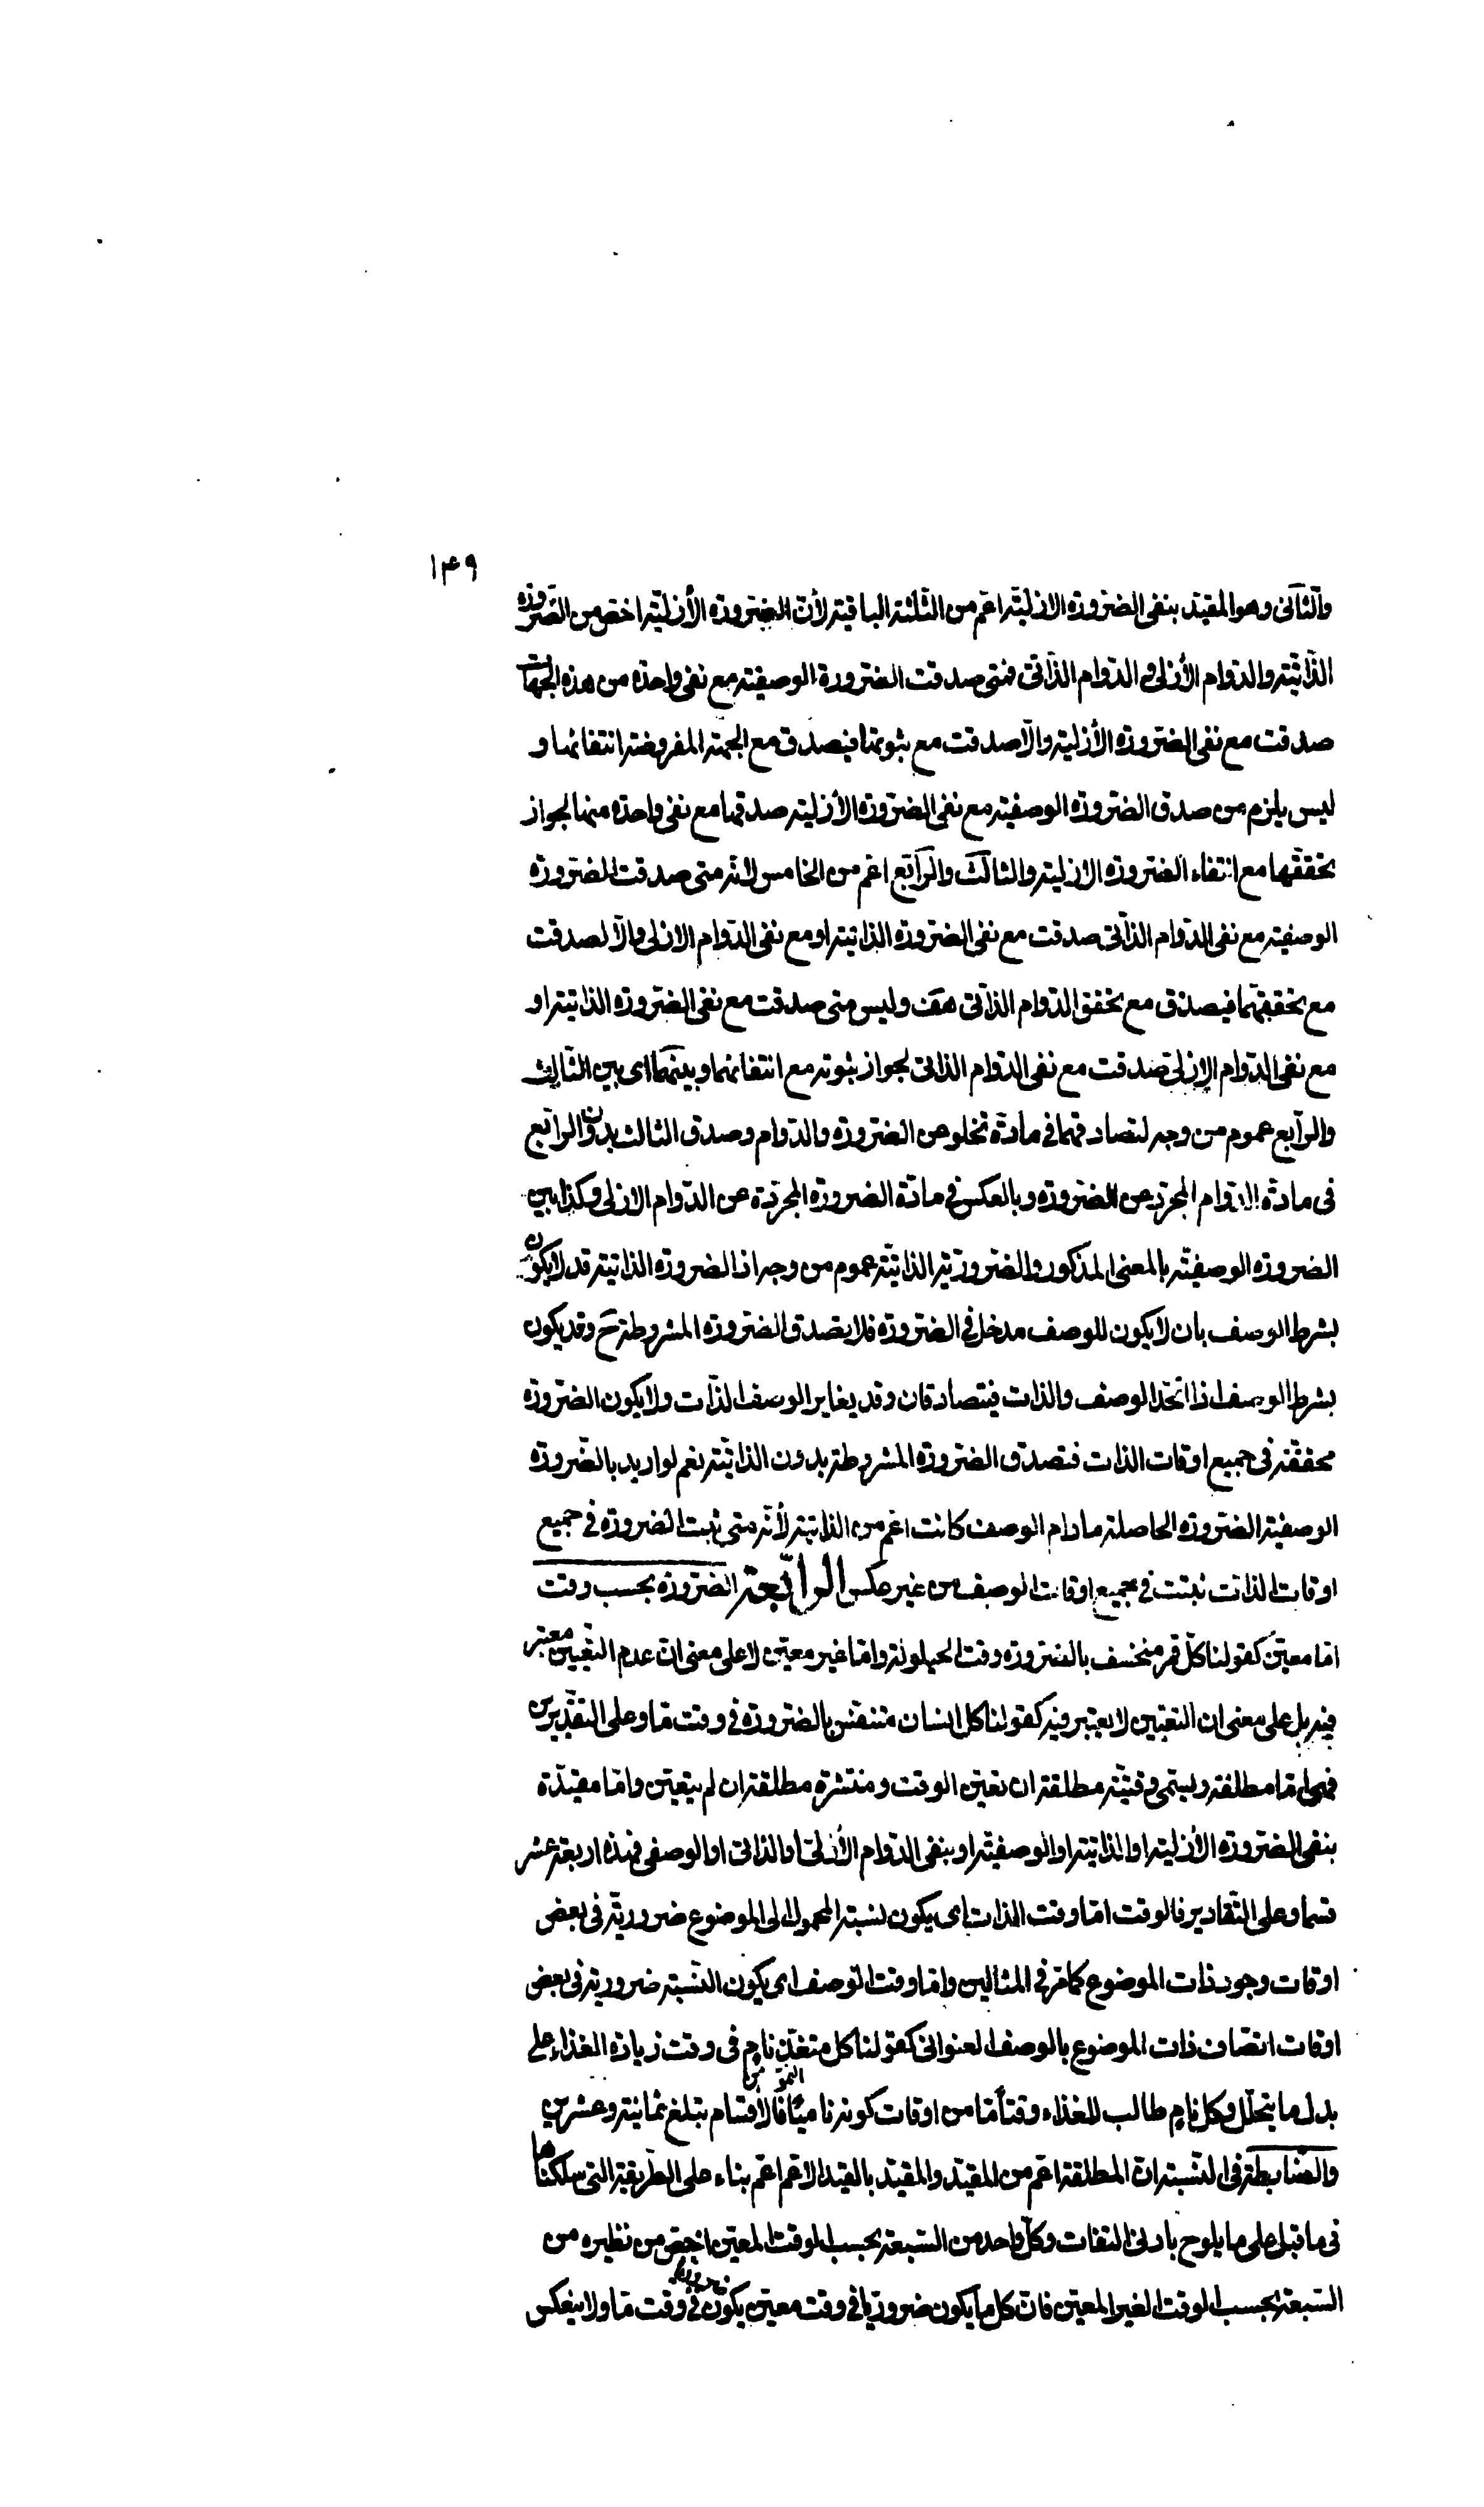 ١٤٩
والثانى وهو المقيد بنفى الضرورة الازلية اعم من الثلثة الباقية لأن الضرورة الأزلية اخص من الضرورة
الذاتية والدوام الأزلى والدوام الذاتى فمتى صدقت الضرورة الوصفية مع نفى واحدة من هذه الجهات
صدقت مع نفى الضرورة الأزلية والّا صدقت مع ثبوتها فيصدق مع الجهة المفروضة انتفائها و
ليس يلزم من صدق الضرورة الوصفية مع نفى الضرورة الأزلية صدقها مع نفى واحدة منها لجواز
تحققها مع انتفاء الضرورة الازلية والثالث والرابع اعم من الخامس لانه متى صدقت الضرورة
الوصفية مع نفى الدوام الذاتى صدقت مع نفى الضرورة الذاتية او مع نفى الدوام الازلى والّا لصدقت
مع تحققهما فيصدق مع تحقق الدوام الذاتى هف وليس متى صدقت مع نفى الضرورة الذاتية او
مع نفى الدوام الازلى صدقت مع نفى الدوام الذاتى لجواز ثبوته مع انتفائهما وبينهما اى بين الثالث
والرابع عموم من وجه لتصادقهما فى مادة تخلو عن الضرورة والدوام وصدق الثالث بدون الرابع
فى مادة الدوام المجرد عن الضرورة وبالعكس فى مادة الضرورة المجردة عن الدوام الازلى وكذا بين
الضرورة الوصفية بالمعنى المذكور والضرورية الذاتية عموم من وجه اذ الضرورة الذاتية قد لا يكون
بشرط الوصف بان لا يكون للوصف مدخل فى الضرورة فلا يصدق الضرورة المشروطة ح وقد يكون
بشرط الوصف اذا اتحد الوصف والذات فيتصادقان وقد يغاير الوصف الذات ولا يكون الضرورة
محققة فى جميع اوقات الذات فتصدق الضرورة المشروطة بدون الذاتية نعم لو اريد بالضرورة
الوصفية الضرورة الحاصلة مادام الوصف كانت اعم من الذاتية لأنه متى ثبت الضرورة فى جميع
اوقات الذات ثبتت فى جميع اوقات الوصف من غير عكس الرابعة الضرورة بحسب وقت
امّا معين كقولنا كل قمر منخسف بالضرورة وقت الحيلولة وامّا غير معين لا على معنى ان عدم التعيين معتبر
فيه بل على معنى ان التعيين لا يعتبر فيه كقولنا كل انسان متنفس بالضرورة فى وقت ما وعلى التقديرين
فهى امّا مطلقة ويسمى وقتية مطلقة ان تعين الوقت ومنتشرة مطلقة ان لم يتعين وامّا مقيدة
بنفى الضرورة الأزلية او الذاتية او الوصفية او بنفى الدوام الأزلى او الذاتى او الوصفى فهذه اربعة عشر
قسما وعلى التقادير فالوقت امّا وقت الذات اى يكون نسبة المحمول الى الموضوع ضرورية فى بعض
اوقات وجود ذات الموضوع كما مر فى المثالين وامّا وقت الوصف اى يكون النسبة ضرورية فى بعض
اوقات اتصاف ذات الموضوع بالوصف العنوانى كقولنا كل متغذ نام فى وقت زيادة الغذاء على
بدل ما يتحلل وكل نام طالب للغذاء وقتا ما من اوقات كونه ناميا فالأقسام تبلغ ثمانية وعشرين
والضابطة فى النسبة ان المطلقة اعم من المقيد والمقيد بالقيد الاعم اعم بناء على الطريقة التى سلكناها
فى ما قبل على ما يلوح بادنى التفات وكل واحد من السبعة بحسب الوقت المعين اخص من نظيره من
السبعة بحسب الوقت الغير المعين فان كل ما يكون ضروريا فى وقت معين يكون ضروريا فى وقت ما ولا ينعكس